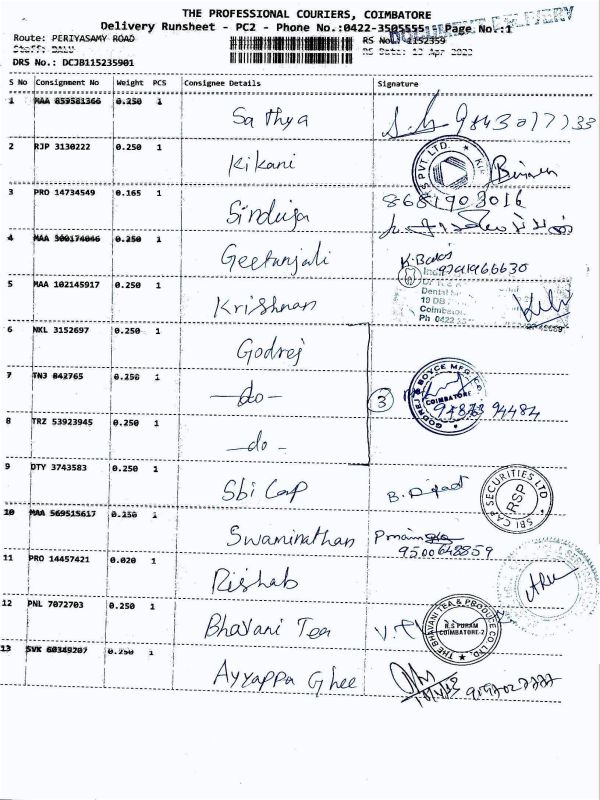 THE PROFESSIONAL COURIERS, COIMBATORE
Delivery Runsheet - PC2 - Phone No.:0422-3505555 Page No.:1
DOCUMENT DELIVERY
Route: PERIYASAMY ROAD
RS No. 1152359
Staff: BALU
DRS No.: DCJB115235901
S No Consignment No Weight PCS Consignee Details Signature
1 MAA 859581366 0.250 1 Sathya
2 RJP 3130222 0.250 1 Kikani
PVT LTD.
3 PRO 14734549 0.165 1 Sinduja 8681903016
4 MAA 300174046 0.250 1 Geetanjali K. 9791966630
5 MAA 102145917 0.250 1 Krishnan
Dental
Coimbatore
Ph 0422
6 NKL 3152697 0.250 1 Godrej
7 TN3 842765 0.250 1 -do- 3
GODREJ & BOYCE MFG. CO. COIMBATORE
8 TRZ 53923945 0.250 1 -do-
9 DTY 3743583 0.250 1 Sbi Cap B.
SBI CAP SECURITIES LTD RSP
10 MAA 569515617 0.250 1 Swaminathan 9500648859
11 PRO 14457421 0.020 1 Rishab
12 PNL 7072703 0.250 1 Bhavani Tea
THE BHAVANI TEA & PRODUCE CO. LTD. R.S PURAM COIMBATORE-2
13 SVK 60349207 0.250 1 Ayyappa Ghee